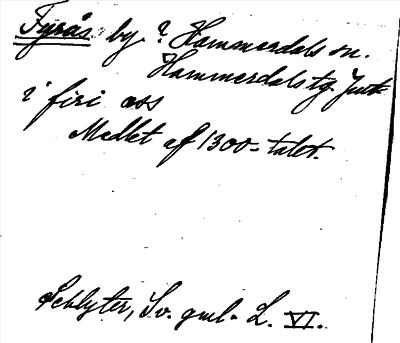 Fyrås by i Hammerdals sn.
Hammerdals tg. Jmtl
i firi oss
Medlet af 1300-talet.
Schlyter, Sv. gml. L. VI.